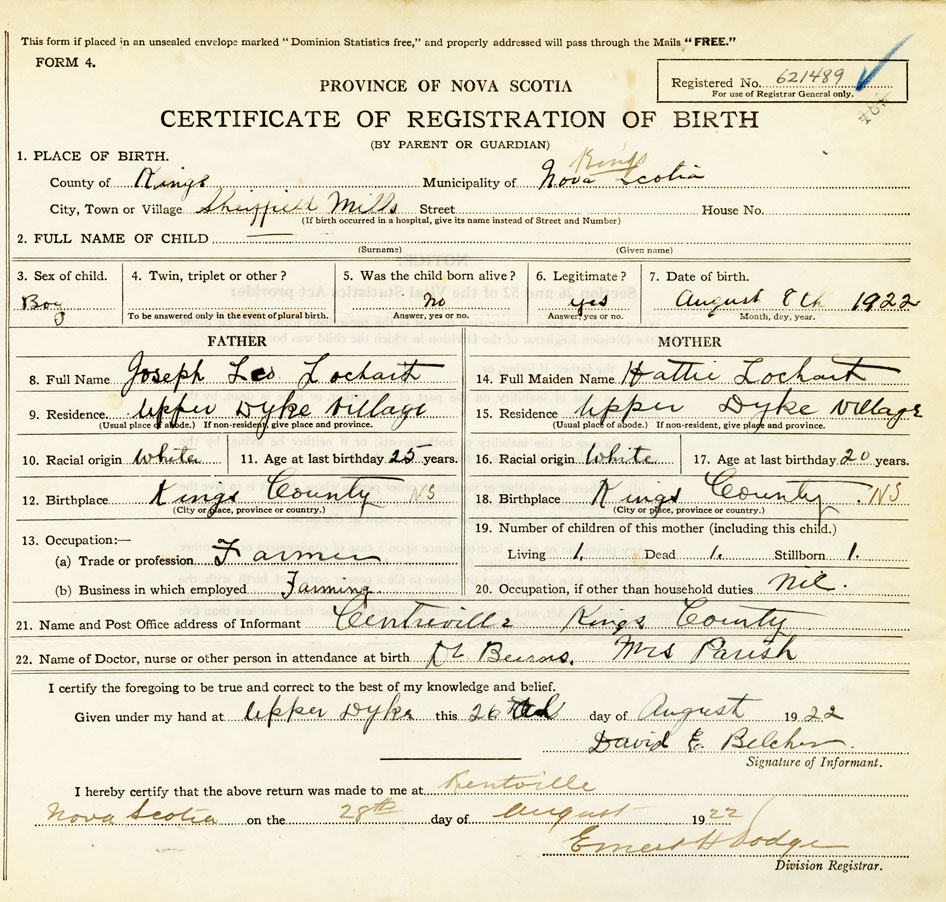 This form if placed in an unsealed envelope marked "Dominion Statistics free," and properly addressed will pass through the Mails "FREE."
FORM 4.
Registered No. 621489
For use of Registrar General only.
PROVINCE OF NOVA SCOTIA
CERTIFICATE OF REGISTRATION OF BIRTH
(BY PARENT OR GUARDIAN)
1. PLACE OF BIRTH.
Kings
County of Kings Municipality of Nova Scotia
City, Town or Village Sheiffield Mills Street House No.
(If birth occurred in a hospital, give its name instead of Street and Number)
2. FULL NAME OF CHILD
(Surname) (Given name)
3. Sex of child. 4. Twin, triplet or other? 5. Was the child born alive? 6. Legitimate? 7. Date of birth.
Boy no yes August 8th 1922
To be answered only in the event of plural birth. Answer, yes or no. Answer, yes or no. Month, day, year.
FATHER
8. Full Name Joseph Leo Lochart
9. Residence Upper Dyke Village
(Usual place of abode.) If non-resident, give place and province.
10. Racial origin White 11. Age at last birthday 25 years.
12. Birthplace Kings County NS
(City or place, province or country.)
13. Occupation:—
(a) Trade or profession Farmer
(b) Business in which employed Farming
MOTHER
14. Full Maiden Name Hattie Lochart
15. Residence Upper Dyke Village
(Usual place of abode.) If non-resident, give place and province.
16. Racial origin White 17. Age at last birthday 20 years.
18. Birthplace Kings County NS
(City or place, province or country.)
19. Number of children of this mother (including this child.)
Living 1. Dead 1. Stillborn 1.
20. Occupation, if other than household duties Nil.
21. Name and Post Office address of Informant Centreville Kings County
22. Name of Doctor, nurse or other person in attendance at birth Dr Mrs Parish
I certify the foregoing to be true and correct to the best of my knowledge and belief.
Given under my hand at Upper Dyke this 26 day of August 1922
David E. Belcher.
Signature of Informant.
I hereby certify that the above return was made to me at Kentville
Nova Scotia on the 28th day of August 1922
Ernest H Dodge
Division Registrar.